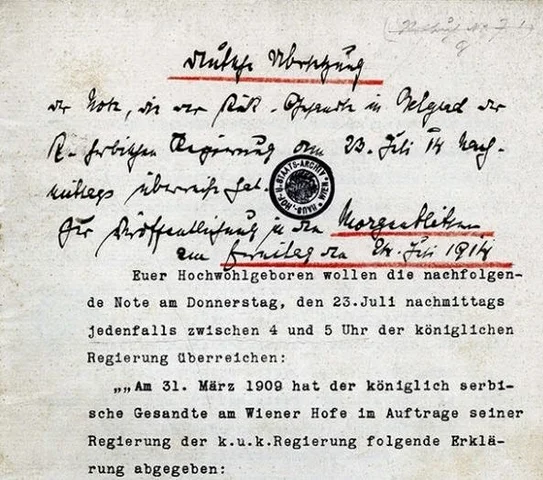 Deutsche Übersetzung
der Note, die der k.u.k. Gesandte in Belgrad der
k. serbischen Regierung am 23. Juli 14 nach-
mittags überreicht hat.
HAUS-HOF-U-STAATS-ARCHIV WIEN
Zur Veröffentlichung in den Morgenblättern
am Freitag den 24. Juli 1914
Euer Hochwohlgeboren wollen die nachfolgen-
de Note am Donnerstag, den 23.Juli nachmittags
jedenfalls zwischen 4 und 5 Uhr der königlichen
Regierung überreichen:
„„Am 31. März 1909 hat der königlich serbi-
sche Gesandte am Wiener Hofe im Auftrage seiner
Regierung der k.u.k.Regierung folgende Erklä-
rung abgegeben: